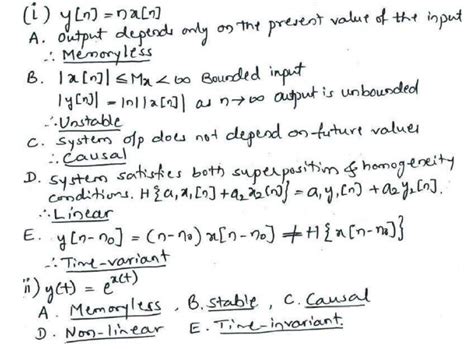 (i) y[n] = nx[n]
A. output depends only on the present value of the input
∴ Memoryless
B. |x[n]| ≤ Mx < ∞ Bounded input
|y[n]| = |n||x[n]| as n→∞ output is unbounded
∴ Unstable
C. System o/p does not depend on future values
∴ Causal
D. System satisfies both superposition & homogeneity
conditions. H{a₁x₁[n]+a₂x₂[n]} = a₁y₁[n] + a₂y₂[n].
∴ Linear
E. y[n-n₀] = (n-n₀) x[n-n₀] ≠ H{x[n-n₀]}
∴ Time-variant
ii) y(t) = e^x(t)
A. Memoryless, B. stable, C. Causal
D. Non-linear E. Time-invariant.